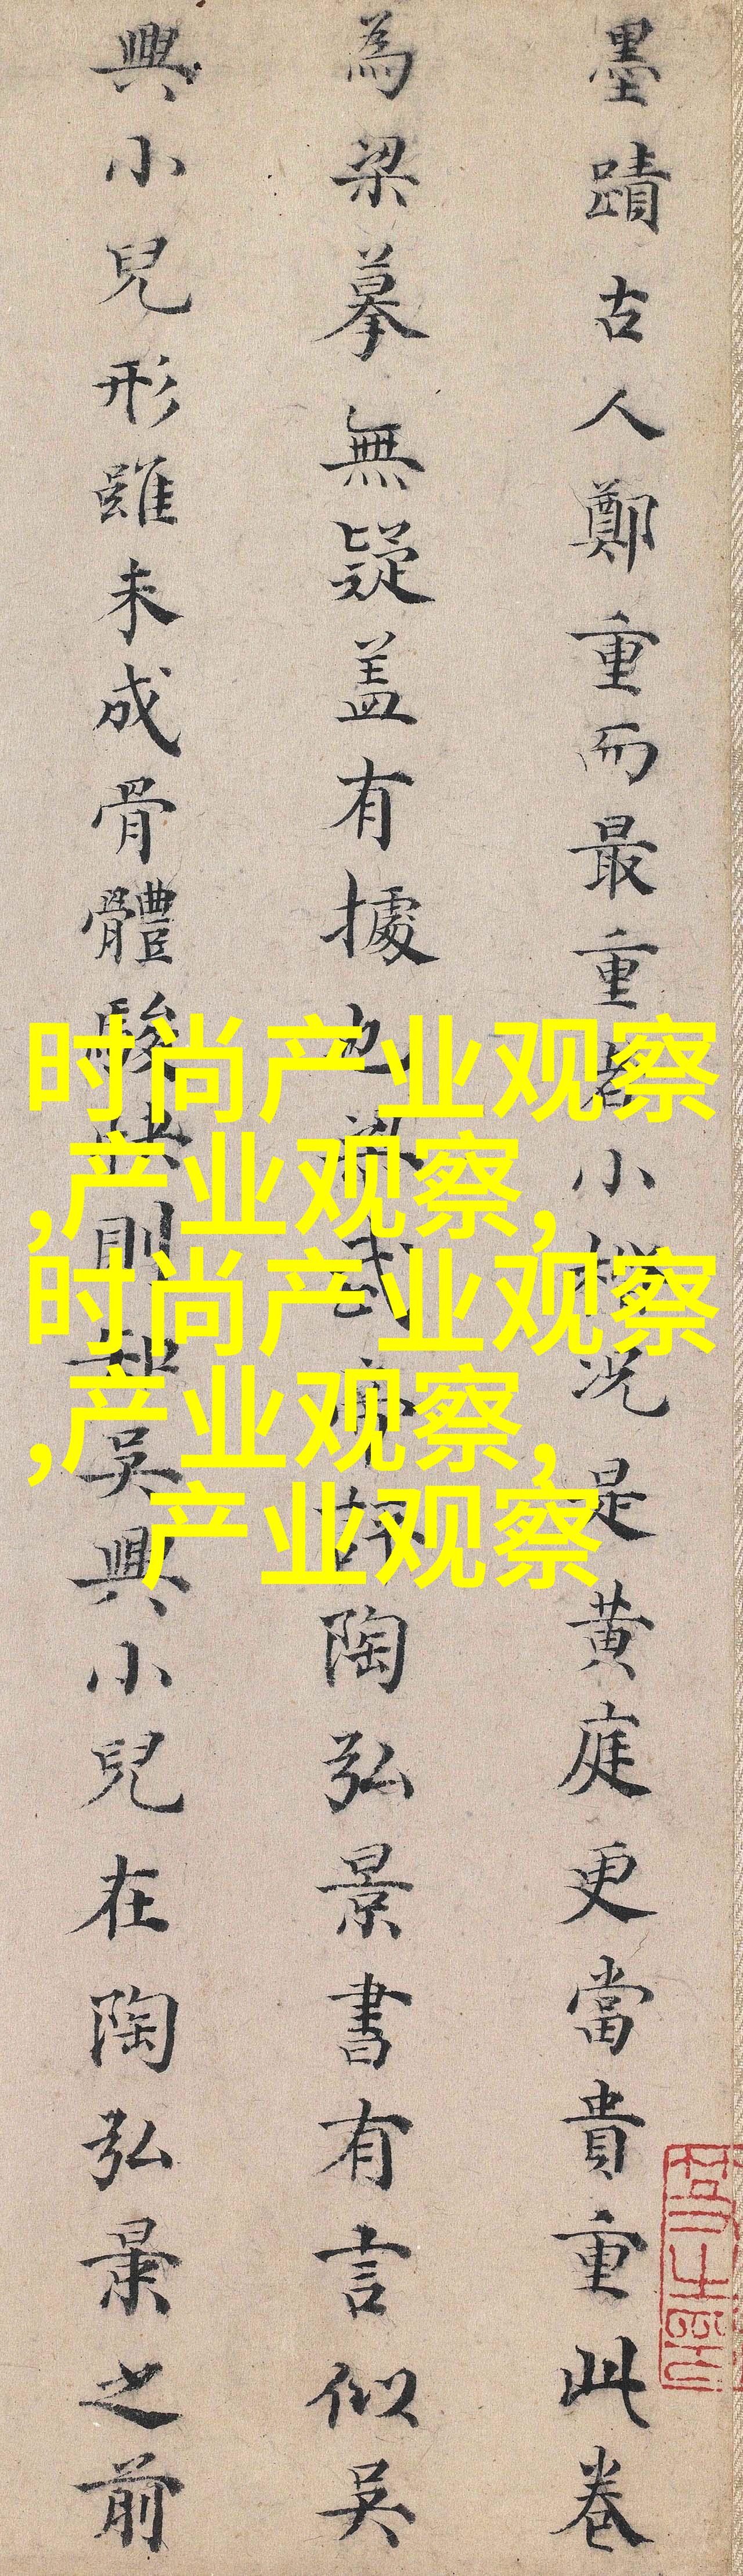 墨蹟古人鄭重而最重者小楷况是黄庭更當貴重此卷
為梁摹無疑盖有據也梁武帝評陶弘景書有言似吳
興小兒形雖未成骨體駿快則知吳興小兒在陶弘景之前
时尚产业观察
,产业观察,
时尚产业观察
,产业观察,
产业观察